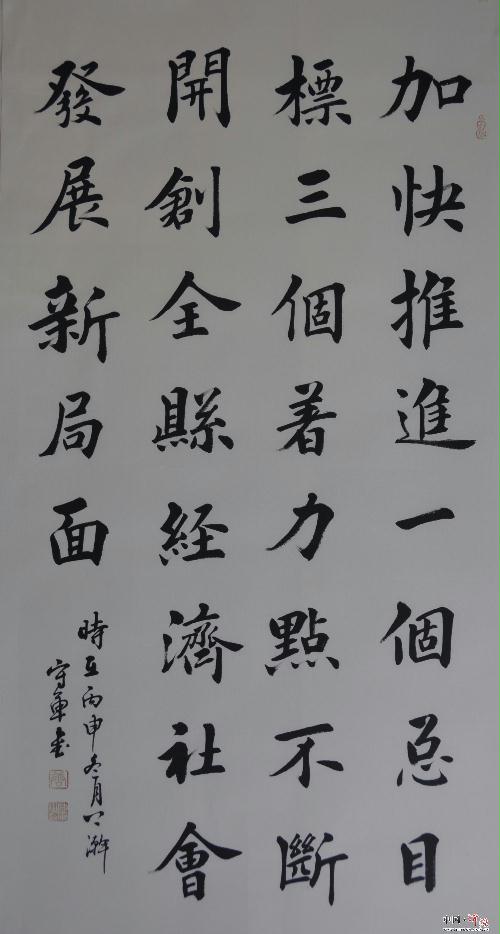 加快推進一個总目
標三個着力點不斷
開創全縣経濟社會
發展新局面
時在丙申冬月上澣
守軍書